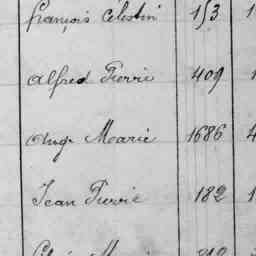 françois Célestin 153 1
Alfred Pierre 409 1
Ange Marie 1686 4
Jean Pierre 182 1